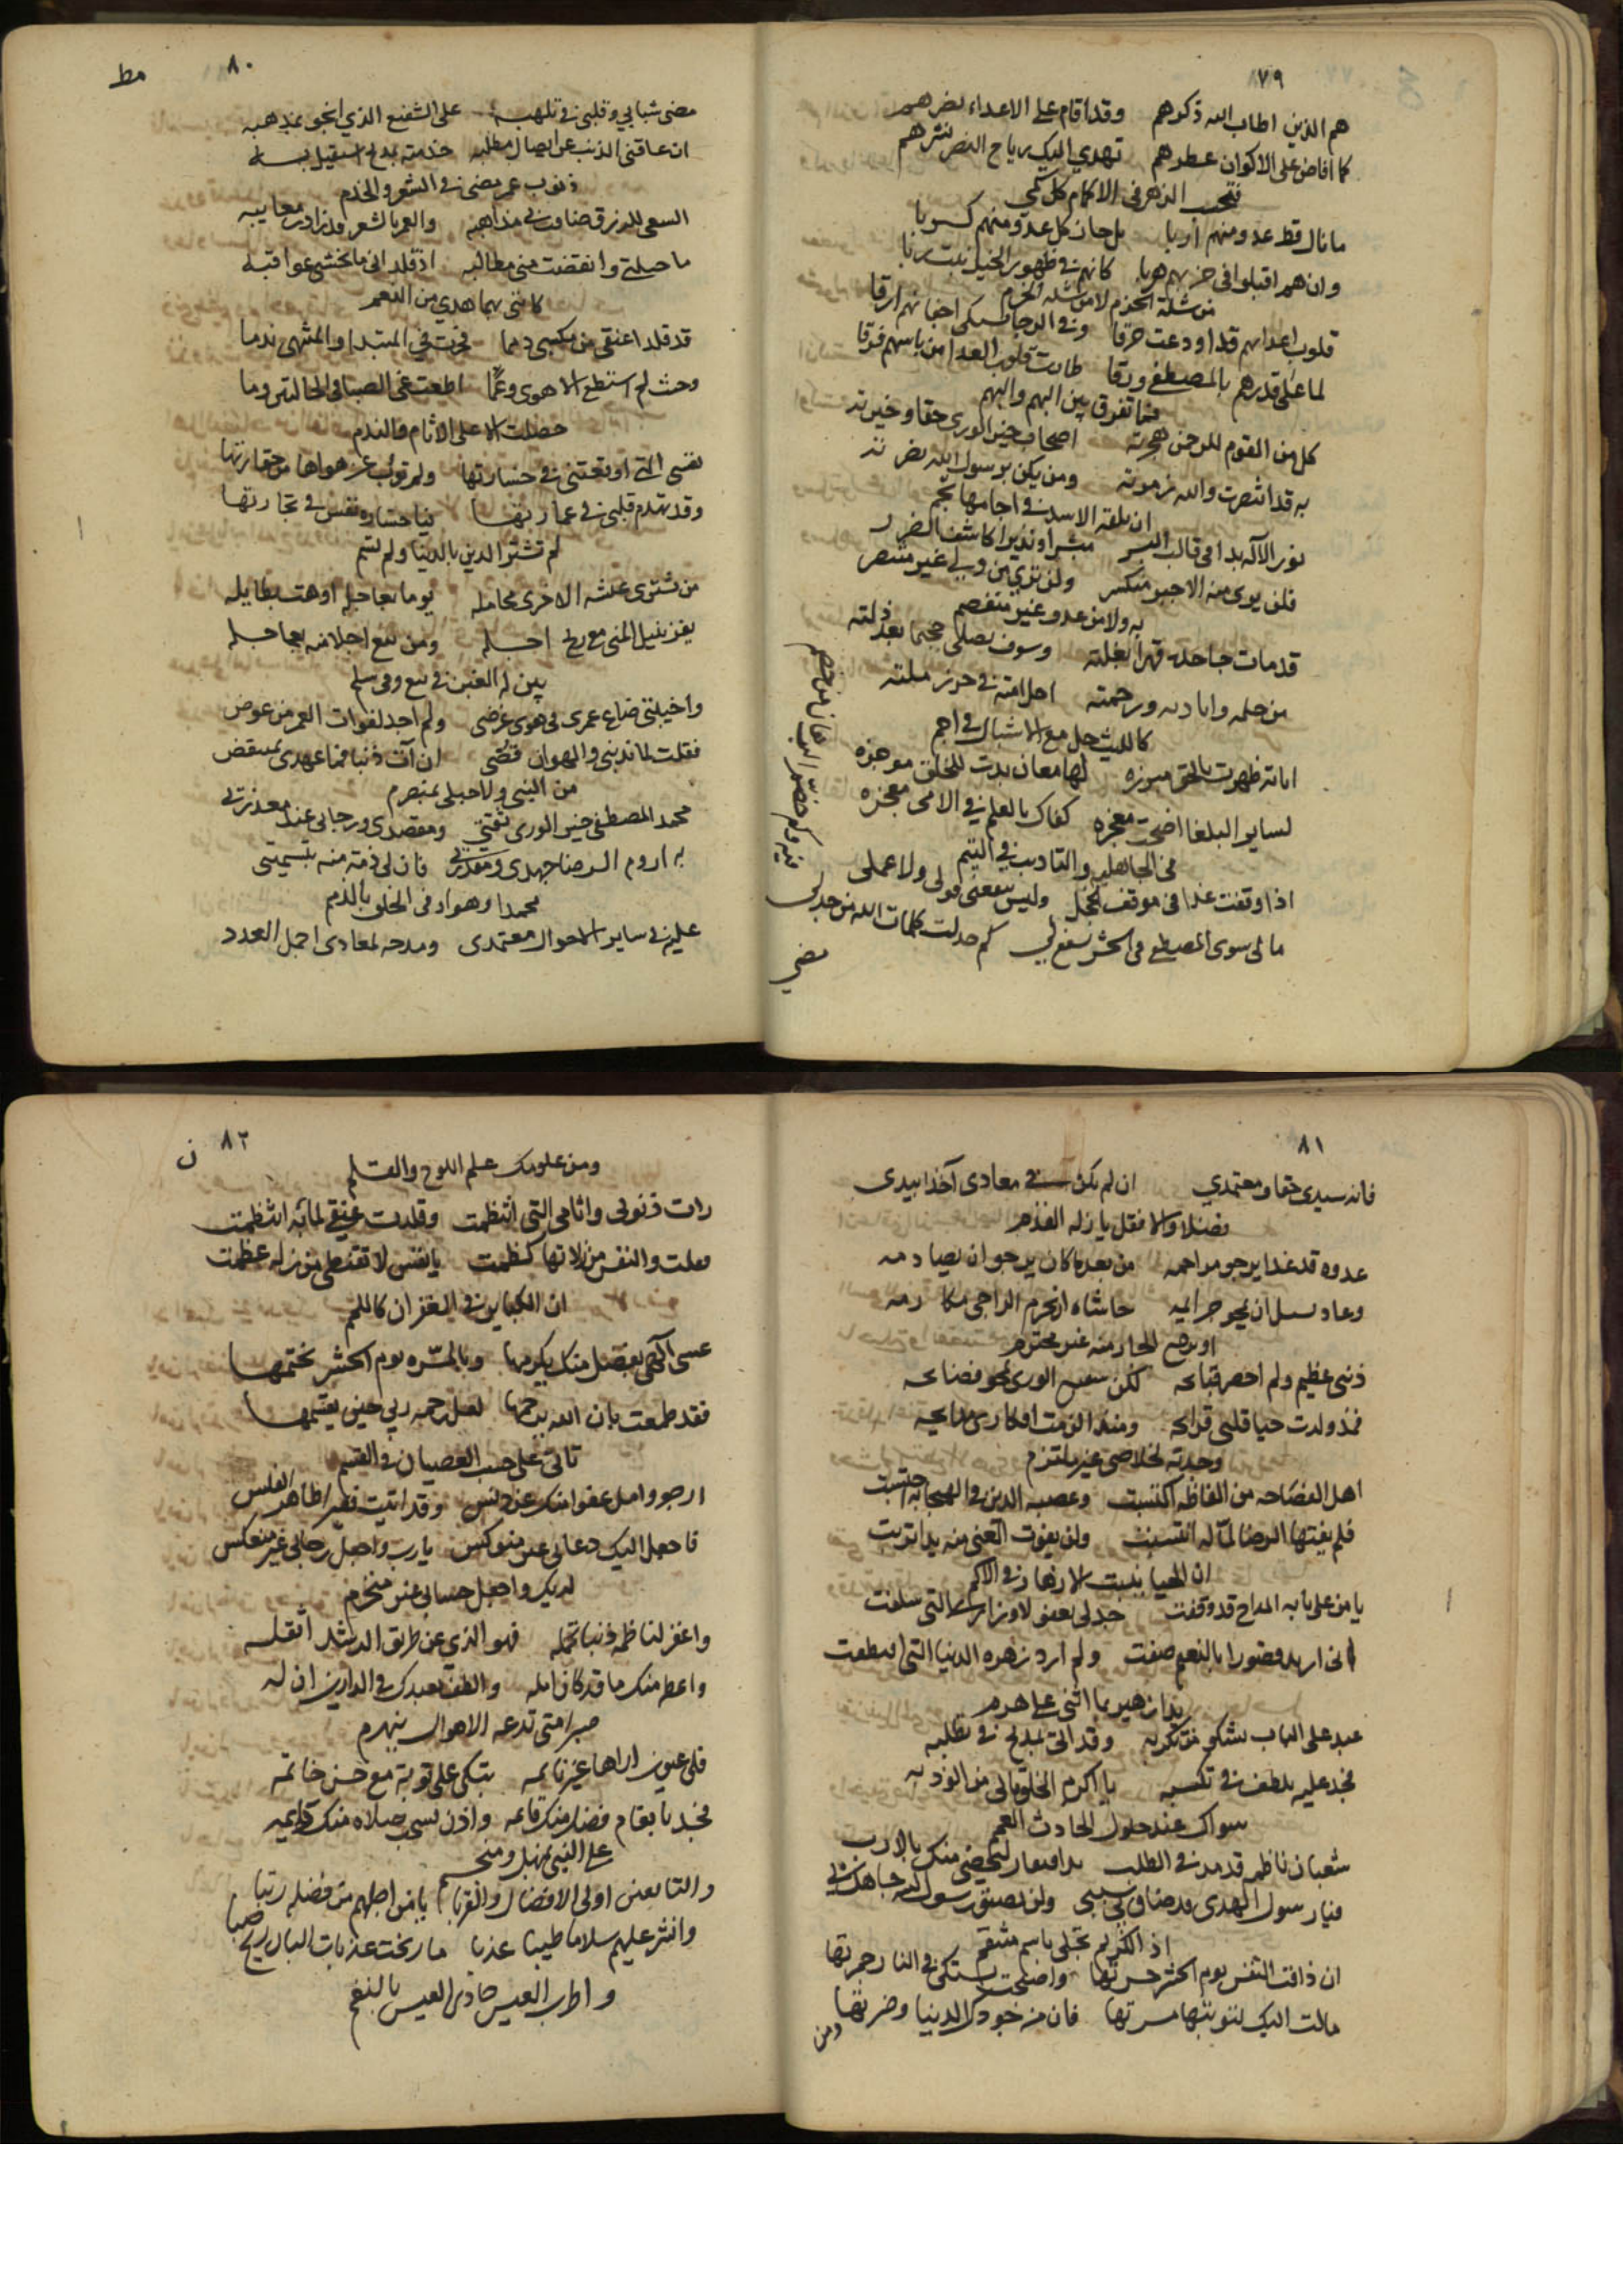 ٧٩
هم الذين اطاب الله ذكرهم وقد اقام على الاعداء نصرهم
كما افاض على الاكوان عطرهم تهدي اليك رياح النصر نشرهم
فتحسب الزهر في الاكمام كل كمي
ما نال قط عدو منهم اربا بل حاز كل عدو منهم كربا
وان هم اقبلوا في حزبهم هربا كانهم في ظهور الخيل نبت ربا
من شدة الحزم لا من شدة الحزم
قلوب اعدايهم قد اودعت حرقا
لما علا قدرهم بالمصطفى ورقا طارت قلوب العدا من باسهم فرقا
فما تفرق بين البهم والبهم
كل من القوم للرحمن هجرته اصحاب خير الورى حقا وخيرته
به قد انتصرت والله زمرته ومن يكن برسول الله نصرته
ان تلقه الاسد في اجامها تجم
نور الاله بدا في قالب البشر مبشرا ونذيرا كاشف الضرر
فلن يرى منه الا جبر منكسر ولن ترى من ولي غير منتصر
به ولا من عدو غير منقصم
قد مات جاحده قهرا بغلته وسوف يصلى جحيما بعد ذلته
من حلمه واياديه ورحمته احل امته في حرز ملته
كالليث حل مع الاشبال في اجم
اياته ظهرت بالحق مبرزه لها معان بدت للخلق موجزه
لساير البلغا اضحت معجزه كفاك بالعلم في الامي معجزه
في الجاهليه والتاديب في اليتم
اذا وقفت غدا في موقف الخجل وليس ينفعني قولي ولا عملي
ما لي سوى المصطفى في الحشر يشفع لي كم جدلت كلمات الله من جدل
فيه وكم خصم البرهان من خصم
مضى
٨٠
مضى شبابي وقلبي في تلهبه على الشفيع الذي انجو بمذهبه
ان عاقني الذنب عن ايصال مطلبه خدمته بمديح استقيل به
ذنوب عمر مضى في الشعر والخدم
السعي للرزق ضاقت في مذاهبه والعمر بالشعر قد زادت معايبه
ما حيلتي وانقضت مني مطالبه اذ قلداني ما تخشى عواقبه
كانني بهما هدي من النعم
قد قلد اعنقي من مكسبي دمما فحزت في المبتدا والمنتهى ندما
وحيث لم استطع الا هوى وعما اطعت غي الصبا في الحالتين وما
حصلت الا على الاثام والندم
نفسي التي اوقعتني في خسارتها ولم تؤب عن هواها من حقارتها
وقد تهدم قلبي في عمارتها فيا خسارة نفس في تجارتها
لم تشتر الدين بالدنيا ولم تسم
من يشترى عيشه الاخرى بحامله يوما بعاجله اوهت بطايله
يفز بنيل المنى مع ربح احله ومن يبع اجلا منه بعاجله
يبن له الغبن في بيع وفي سلم
واخيبتي ضاع عمري في هوى غرضي ولم اجد لفوات العمر من عوض
فقلت لما ندبني والهوان قضى ان آت ذنبا فما عهدي بمنتقض
من النبي ولا حبلي بمنصرم
محمد المصطفى خير الورى ثقتي ومقصدي ورجائي عند معذرتي
به اروم الرضا جهدي ومقدرتي فان لي ذمة منه بتسميتي
محمدا وهو اوفى الخلق بالذمم
عليه في ساير الاحوال معتمدي ومدحه لمعادي اجمل العدد
٨١
فانه سيدي حقا ومعتمدي ان لم يكن في معادي آخذا بيدي
فضلا والا فقل يا زلة القدم
عدوه قد غدا يرجو مراحمه من بعد ما كان يرجو ان يصادمه
وعاد يسال ان يمحو جرائمه حاشاه ان يحرم الراجي مكارمه
او يرجع الجار منه غير محترم
ذنبي عظيم ولم احصر قبائحه لكن شفيع الورى يمحو فضائحه
فمذ ولدت حيا قلبي قرائحه ومنذ الزمت افكاري مدائحه
وجدته لخلاصي خير ملتزم
اهل الفصاحه من الفاظه اكتسبت وعصبه الدين في الهيجا به احتسبت
فلم يفتها الرضا لما له انتسبت ولن يفوت الغنى منه يدا تربت
ان الحيا ينبت الازهار في الاكم
يا من على بابه المداح قد وقفت جد لي بعفو لاوزاري التي سلفت
اني اريد قصورا بالنعيم صفت ولم ارد زهرة الدنيا التي اقتطفت
يدا زهير بما اثنى على هرم
عبد على الباب يشكو من تكربه وقد اتى بمديح في تطلبه
فجد عليه بلطف في تكسبه يا اكرم الخلق ما لي من الوذ به
سواك عند حلول الحادث العمم
شعبان ناظم قد مد في الطلب يد افتقار لتحضى منك بالارب
فيا رسول الهدى قد ضاق بي سببي ولن يضيق رسول الله جاهك بي
اذا الكريم تجلى باسم منتقم
ان ذاقت النفس يوم الحشر حسرتها واصبحت تشتكي في النار حمرتها
مالت اليك لتوتيها مسرتها فان من جودك الدنيا وضرتها
ومن
٨٢
ومن علومك علم اللوح والقلم
رات ذنوبي واثامي التي انتظمت وقلدت عنقي لما به انتظمت
فقلت والنفس من زلاتها كظمت يا نفس لا تقنطي من زلة عظمت
ان الكباير في الغفران كاللمم
عسى الهي بفضل منك يكرمها وبالمسره يوم الحشر يختمها
فقد طمعت بان الله يرحمها لعل رحمة ربي حين يقسمها
تاتي على حسب العصيان في القسم
ارجو وامل عفوا منك عن دنس وقد اتيت فقيرا ظاهر الفلس
فاجعل اليك دعائي غير منوكس يا رب واجعل رجائي غير منعكس
لديك واجعل حسابي غير منخرم
واغفر لناظمه ذنبا تحمله فهو الذي عن طريق الرشد اثقله
واعطه منك ما قد كان امله والطف بعبدك في الدارين ان له
صبرا متى تدعه الاهوال ينهزم
فلي عيون اراها غير نائمه تبكي على توبة مع حسن خاتمه
فجد بانعام فضل منك قائمه واذن لسحب صلاة منك دائمه
على النبي بمنهل ومنسجم
والتابعين اولي الافضال والقربا يا من احلهم من فضله رتبا
وانشر عليهم سلاما طيبا عذبا ما رنحت عذبات البان ريح صبا
واطرب العيس حادي العيس بالنغم